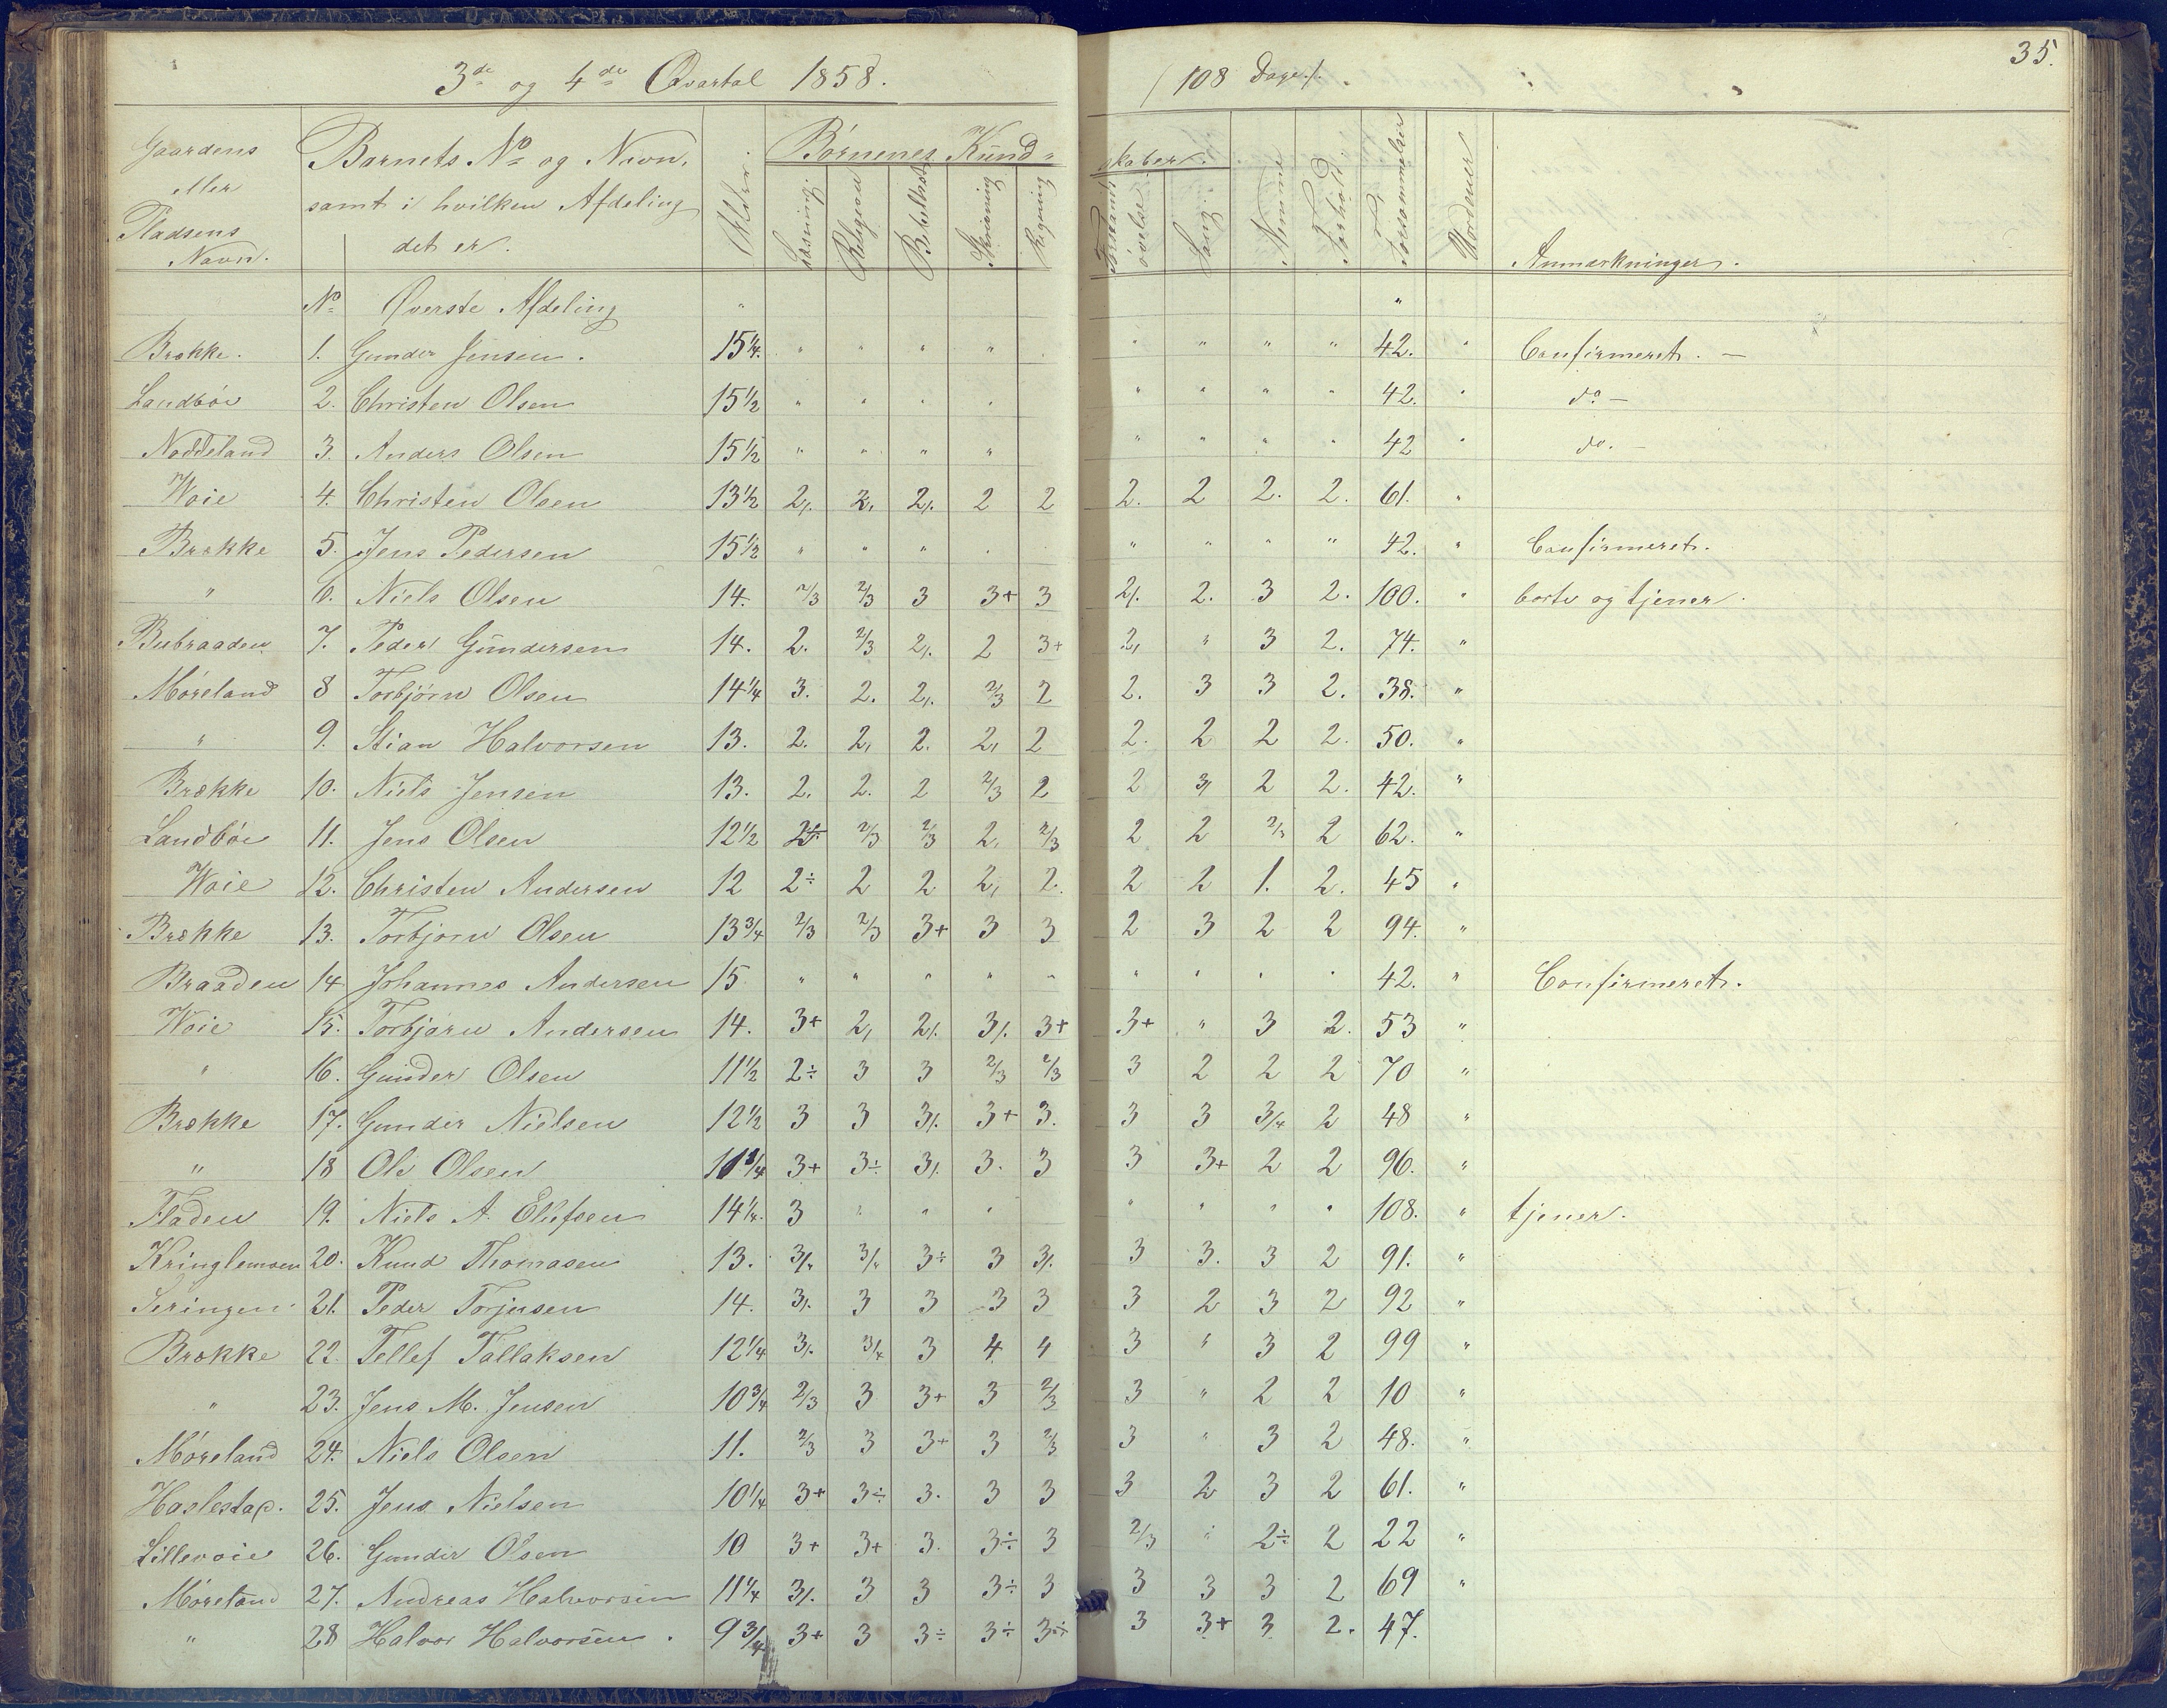 3de og 4de Qvartal 1858. (108 Dage). 35.
Gaardens eller Pladsens Navn. Barnets No og Navn, samt i hvilken Afdeling det er. Alder. Børnenes Kund- skaber.
Læsning. Religion Bibelhist. Skrivning Regning Forstands øvelse. Sang. Nemme Forhold. Forsømmelser Uordener Anmærkninger.
No Øverste Afdeling " "
Brække. 1. Gunder Jensen. 15 1/4. " " " " " " " " 42. " Confirmeret. —
Landbøe 2. Christen Olsen 15 1/2 " " " " " " " " 42. " do —
Noddeland 3. Anders Olsen 15 1/2 " " " " " " " " 42 " do. —
Woie 4. Christen Olsen 13 1/2 2/. 2, 2/. 2 2 2. 2 2. 2. 61. "
Brække 5. Jens Pedersen 15 1/2 " " " " " " " " 42. " Confirmeret.
" 6. Niels Olsen 14. 2/3 2/3 3 3+ 3 2/. 2. 3 2. 100. " borte og tjener.
7. Peder Gundersen 14. 2. 2/3 2/. 2 3+ 2, " 3 2. 74. "
Møreland 8 Torbjørn Olsen 14 1/4 3. 2. 2/. 2/3 2 2. 3 3 2. 38. "
" 9. Stian Halvorsen 13. 2. 2, 2. 2, 2 2. 2 2 2. 50. "
Brække 10. Niels Jensen 13. 2. 2. 2 2/3 2 2 3/ 2 2. 42. "
Landbøe 11. Jens Olsen 12 1/2 2÷ 2/3 2/3 2, 2/3 2 2 2/3 2 62. "
Woie 12. Christen Andersen 12 2÷ 2 2 2, 2. 2 2 1. 2. 45 "
Brække 13. Torbjørn Olsen 13 3/4 2/3 2/3 3+ 3 3 2 3 2 2 94. "
Braaden 14. Johannes Andersen 15 " " " " " " " " " 42. " Confirmeret.
Woie 15. Torbjørn Andersen 14. 3+ 2, 2/. 3/. 3+ 3+ " 3 2. 53 "
" 16. Gunder Olsen 11 1/2 2÷ 3 3 2/3 2/3 3 2 2 2 70 "
Brække 17. Gunder Nielsen 12 1/2 3 3 3/. 3+ 3. 3 3 3/4 2 48 "
" 18 Ole Olsen 11 3/4 3+ 3÷ 3/. 3. 3 3 3+ 2 2 96. "
Fladen 19. Niels A. Ellefsen 14 1/4. 3 " " " " " " " 108. " tjener.
Kringlemoen 20. Knud Thomasen 13. 3/. 3/. 3÷ 3 3/. 3 3. 3 2 91. "
21. Peder Torjusen 14. 3/. 3 3 3 3 3 2 3 2 92 "
Brække 22. Tellef Tallaksen 12 1/4 3/. 3/4 3 4 4 3 " 3 2 99 "
" 23. Jens M. Jensen 10 3/4 2/3 3 3+ 3 2/3 3 " 2 2 10 "
Møreland 24. Niels Olsen 11. 2/3 3 3+ 3 2/3 3 " 3 2 48. "
25. Jens Nielsen 10 1/4 3+ 3÷ 3. 3 3 3 2 3 2 61. "
Lillevoie 26. Gunder Olsen 10 3+ 3+ 3. 3÷ 3 2/3 " 2÷ 2 22 "
Møreland 27. Andreas Halvorsen 11 1/4 3/. 3 3 3÷ 3 3 3 3 2 69 "
" 28 Halvor Halvorsen. 9 3/4 3+ 3 3÷ 3÷ 3÷ 3 3+ 3 2. 47.